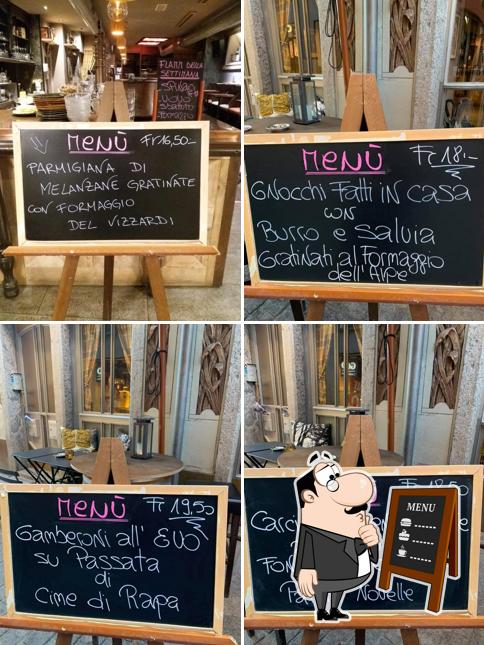 FLAMM DELLA
SETTIMANA
UOVO
FORMAGGIO
MENÙ Fr 16,50.-
PARMIGIANA DI
MELANZANE GRATINATE
CON FORMAGGIO
DEL VIZZARDI
MENÙ Fr 18.-
GNOCCHI FATTI IN CASA
CON
BURRO e SALVIA
Gratinati al Formaggio
dell'Alpe
MENÙ Fr 19,50
Gamberoni all' EVO
su Passata
di
Cime di Rapa
Novelle
MENU